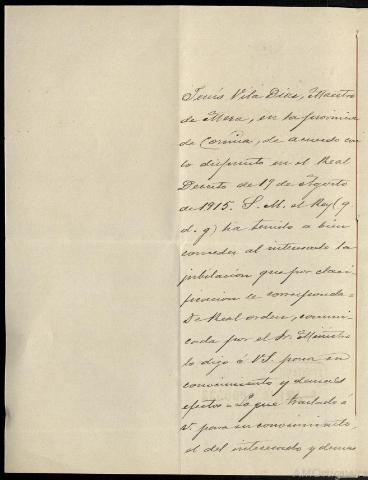 Jesús Vila Diaz, Maestro
de Mera, en la provincia
de Coruña, de acuerdo con
lo dispuesto en el Real
Decreto de 19 de Agosto
de 1915. S. M. el Rey (q.
d. g) ha tenido a bien
conceder al interesado la
jubilación que por clasi-
ficacion le corresponda-
De Real orden, comuni-
cada por el Sr. Ministro
lo digo á V.S. para su
conocimiento y demas
efectos - Lo que traslado á
V. para su conocimiento,
el del interesado y demas